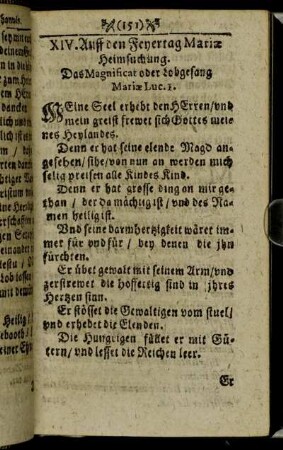 (151)
XIV. Auff den Feyertag Mariæ
Heimsuchung.
Das Magnificat oder Lobgesang
Mariæ Luc. 1.
MEine Seel erhebt den HErren/vnd
mein greist frewet sich Gottes mei-
nes Heylandes.
Denn er hat seine elende Magd an-
gesehen/sihe/von nun an werden mich
selig preisen alle Kindes Kind.
Denn er hat grosse ding an mir ge-
than/ der da mächtig ist/vnd des Na-
men heilig ist.
Vnd seine barmhertzigkeit wäret im-
mer für vnd für/ bey denen die jhn
fürchten.
Er übet gewalt mit seinem Arm/vnd
zerstrewet die hoffertig sind in jhres
Hertzen sinn.
Er stösset die Gewaltigen vom stuel/
vnd erhebet die Elenden.
Die Hungrigen füllet er mit Gü-
tern/vnd lesset die Reichen leer.
Er